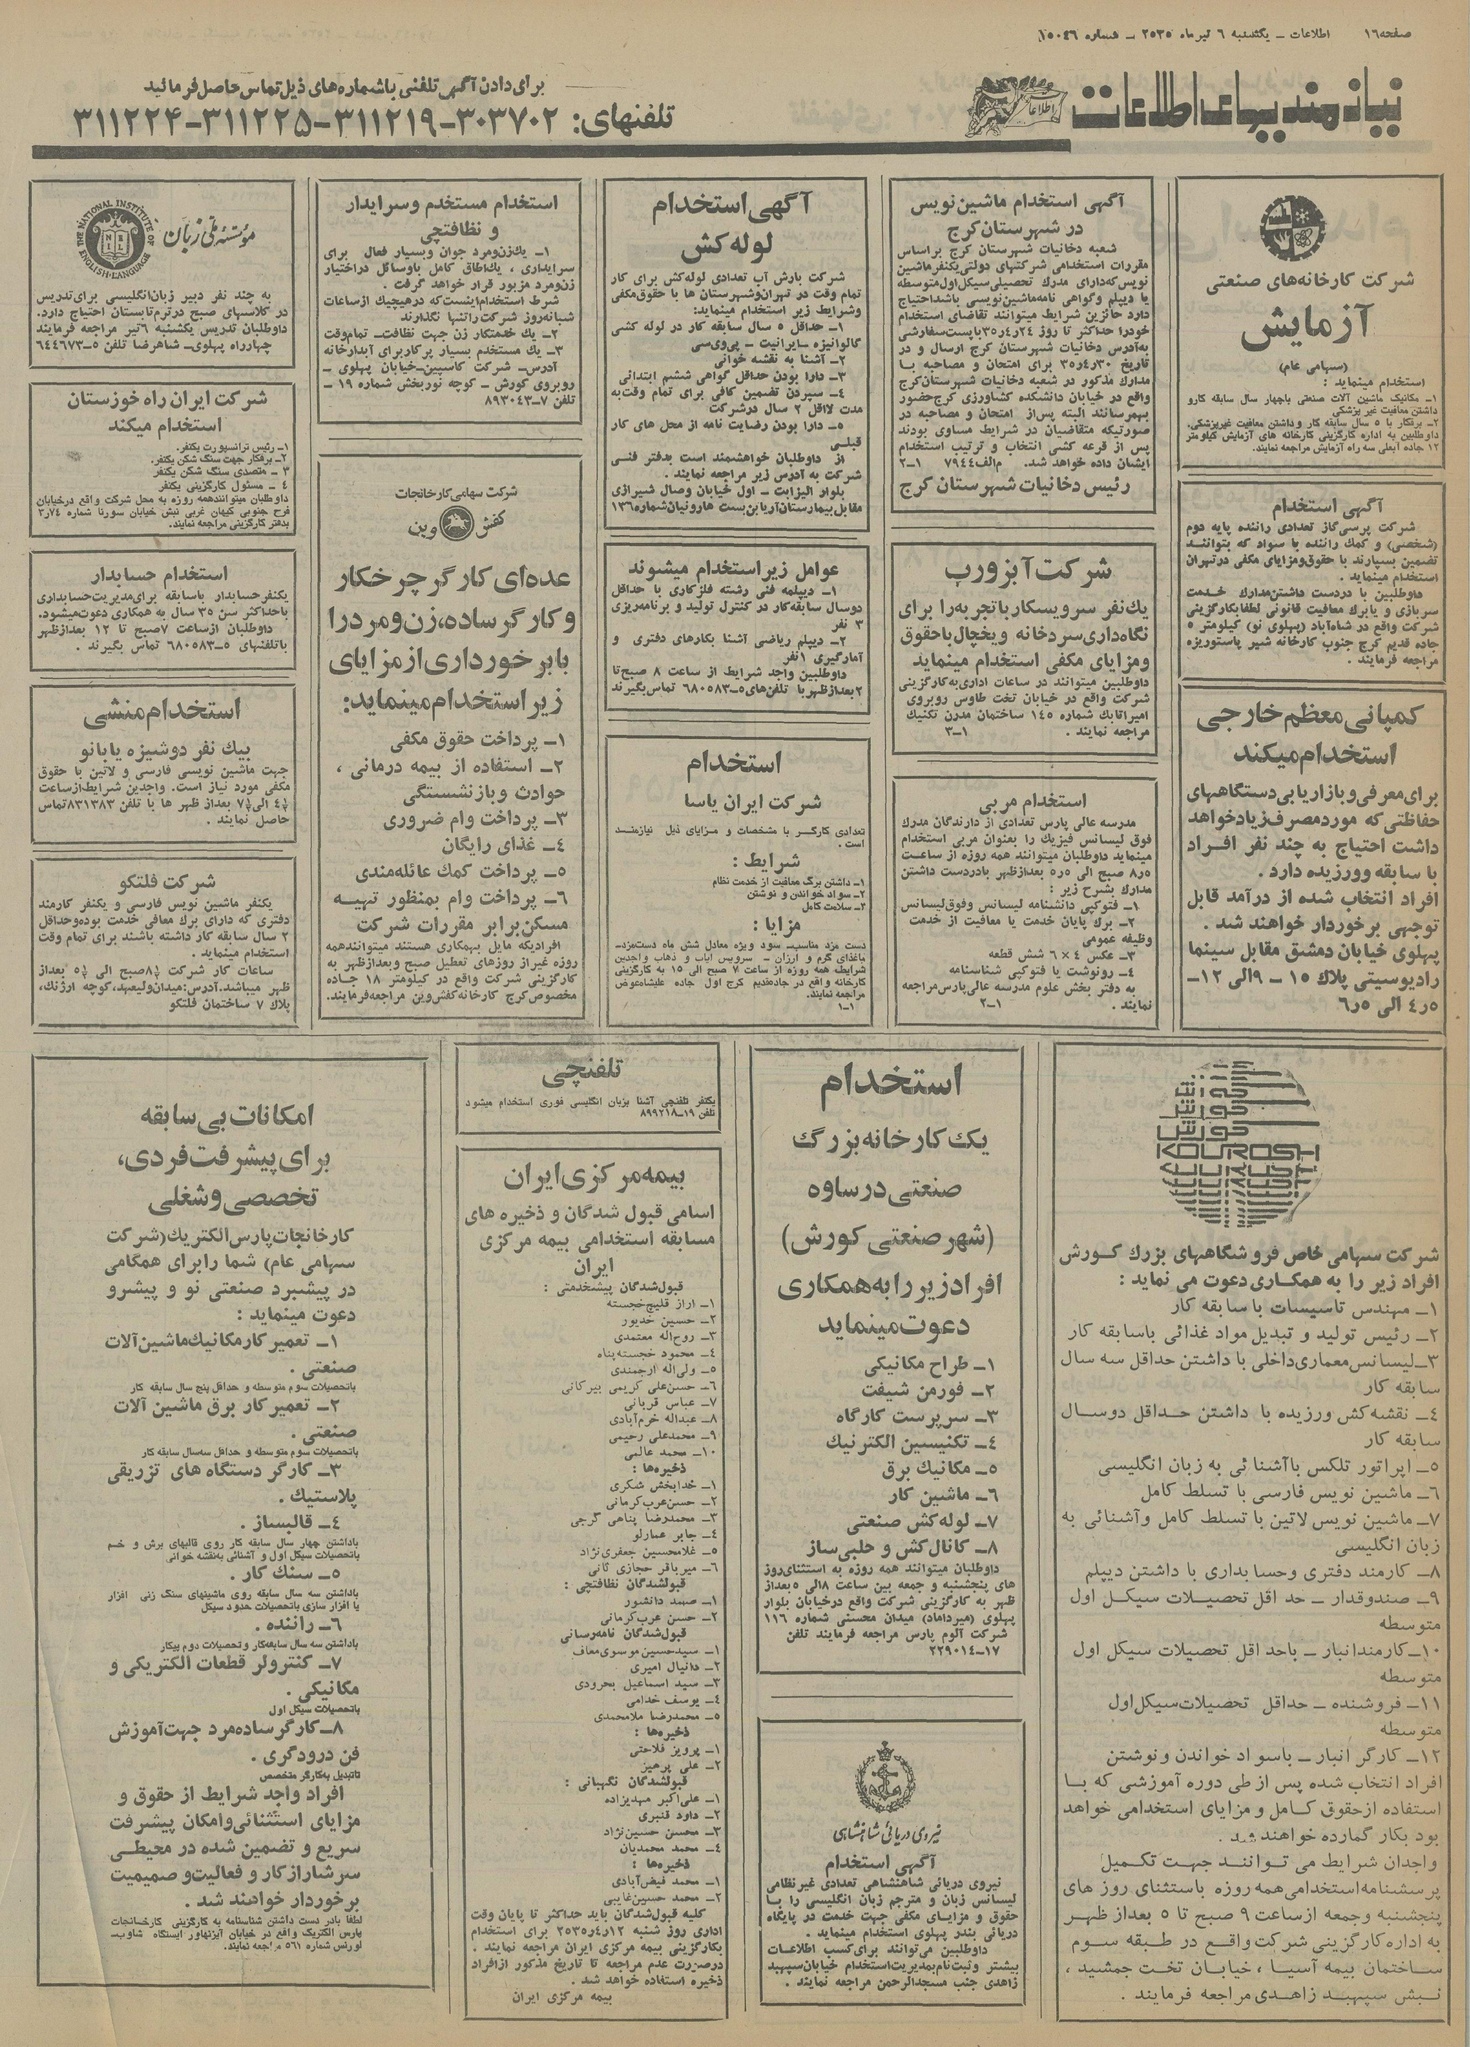 صفحه ۱۶ اطلاعات ـ یکشنبه ۶ تیر ماه ۲۵۳۵ ـ شماره ۱۵۰۴۶
نیازمندیهای اطلاعات
برای دادن آگهی تلفنی با شماره های ذیل تماس حاصل فرمائید
تلفنهای: ۳۰۳۷۰۲-۳۱۱۲۱۹-۳۱۱۲۲۵-۳۱۱۲۲۴
شرکت کارخانه های صنعتی
آزمایش
(سهامی عام)
استخدام مینماید :
۱ـ مکانیک ماشین آلات صنعتی باچهار سال سابقه کارو
داشتن معافیت غیر پزشکی
۲ـ برقکار با ۵ سال سابقه کار و داشتن معافیت غیرپزشکی.
داوطلبین به اداره کارگزینی کارخانه های آزمایش کیلومتر
۱۲ جاده آبعلی سه راه آزمایش مراجعه نمایند.
آگهی استخدام
شرکت پرسی گاز تعدادی راننده پایه دوم
(شخصی) و کمك راننده با سواد که بتوانند
تضمین بسپارند با حقوق ومزایای مکفی در تهران
استخدام مینماید .
داوطلبین با دردست داشتن مدارك خدمت
سربازی و یا برك معافیت قانونی لطفا بکارگزینی
شرکت واقع در شاه آباد (پهلوی نو) کیلومتر ۵
جاده قدیم کرج جنوب کارخانه شیر پاستوریزه
مراجعه فرمایند .
کمپانی معظم خارجی
استخدام میکند
برای معرفی و بازاریابی دستگاههای
حفاظتی که مورد مصرف زیاد خواهد
داشت احتیاج به چند نفر افراد
با سابقه وورزیده دارد .
افراد انتخاب شده از درآمد قابل
توجهی برخوردار خواهند شد .
پهلوی خیابان دمشق مقابل سینما
رادیوسیتی پلاك ۱۵ ـ ۹ الی ۱۲ـ
۴ر۵ الی ۶ر۵
آگهی استخدام ماشین نویس
در شهرستان کرج
شعبه دخانیات شهرستان کرج بر اساس
مقررات استخدامی شرکتهای دولتی یکنفر ماشین
نویس که دارای مدرك تحصیلی سیکل اول متوسطه
یا دیپلم و گواهی نامه ماشین نویسی باشد احتیاج
دارد حائزین شرایط میتوانند تقاضای استخدام
خودرا حداکثر تا روز ۲۴ر۴ر۳۵ با پست سفارشی
به آدرس دخانیات شهرستان کرج ارسال و در
تاریخ ۳۰ر۴ر۳۵ برای امتحان و مصاحبه با
مدارك مذکور در شعبه دخانیات شهرستان کرج
واقع در خیابان دانشکده کشاورزی کرج حضور
بهمرسانند البته پس از امتحان و مصاحبه در
صورتیکه متقاضیان در شرایط مساوی بودند
پس از قرعه کشی انتخاب و ترتیب استخدام
ایشان داده خواهد شد. م الف ۷۹۴۴ ۱-۲
رئیس دخانیات شهرستان کرج
شرکت آبزورپ
یك نفر سرویسکار با تجربه را برای
نگاه داری سردخانه و یخچال باحقوق
ومزایای مکفی استخدام مینماید
داوطلبین میتوانند در ساعات اداری به کارگزینی
شرکت واقع در خیابان تخت طاوس روبروی
امیر اتابك شماره ۱۴۵ ساختمان مدرن تکنیك
مراجعه نمایند . ۱-۳
استخدام مربی
مدرسه عالی پارس تعدادی از دارندگان مدرك
فوق لیسانس فیزیك را بعنوان مربی استخدام
مینماید داوطلبان میتوانند همه روزه از ساعت
۸ر۵ صبح الی ۵ر۵ بعدازظهر با دردست داشتن
مدارك بشرح زیر :
۱ـ فتوکپی دانشنامه لیسانس و فوق لیسانس
۲ـ برك پایان خدمت یا معافیت از خدمت
وظیفه عمومی
۳ـ عکس ۴ × ۶ شش قطعه
۴ـ رونوشت یا فتوکپی شناسنامه
به دفتر بخش علوم مدرسه عالی پارس مراجعه
نمایند . ۱-۲
آگهی استخدام
لوله کش
شرکت بارش آب تعدادی لوله کش برای کار
تمام وقت در تهران و شهرستان ها با حقوق مکفی
وشرایط زیر استخدام مینماید:
۱ـ حداقل ۵ سال سابقه کار در لوله کشی
گالوانیزه ـ ایرانیت ـ پی وی سی
۲ـ آشنا به نقشه خوانی
۳ـ دارا بودن حداقل گواهی ششم ابتدائی
۴ـ سپردن تضمین کافی برای تمام وقت به
مدت لااقل ۲ سال در شرکت
۵ـ دارا بودن رضایت نامه از محل های کار
قبلی
از داوطلبان خواهشمند است بدفتر فنی
شرکت به آدرس زیر مراجعه نمایند .
بلوار الیزابت ـ اول خیابان وصال شیرازی
مقابل بیمارستان آریا بن بست هارونیان شماره ۱۳۶
عوامل زیر استخدام میشوند
۱ـ دیپلمه فنی رشته فلزکاری با حداقل
دوسال سابقه کار در کنترل تولید و برنامه ریزی
۳ نفر
۲ـ دیپلم ریاضی آشنا بکارهای دفتری و
آمارگیری ۱ نفر
داوطلبین واجد شرایط از ساعت ۸ صبح تا
۲ بعدازظهر با تلفن های ۵ـ۶۸۰۵۸۳ تماس بگیرند
استخدام
شرکت ایران یاسا
تعدادی کارگر با مشخصات و مزایای ذیل نیازمند
است .
شرایط :
۱ـ داشتن برگ معافیت از خدمت نظام
۲ـ سواد خواندن و نوشتن
۳ـ سلامت کامل
مزایا :
دست مزد مناسب ـ سود ویژه معادل شش ماه دست مزد ـ
باغذای گرم و ارزان ـ سرویس ایاب و ذهاب واجدین
شرایط همه روزه از ساعت ۷ صبح الی ۱۵ به کارگزینی
کارخانه واقع در جاده قدیم کرج اول جاده علیشاه عوض
مراجعه نمایند.
۱-۱
استخدام مستخدم و سرایدار
و نظافتچی
۱ـ یك زن و مرد جوان و بسیار فعال برای
سرایداری ، یك اطاق کامل باوسائل در اختیار
زن و مرد مزبور قرار خواهد گرفت .
شرط استخدام اینست که در هیچیك از ساعات
شبانه روز شرکت را تنها نگذارند
۲ـ یك خدمتکار زن جهت نظافت ـ تمام وقت
۳ـ یك مستخدم بسیار پرکار برای آبدارخانه
آدرس ـ شرکت کاسپین ـ خیابان پهلوی ـ
روبروی کورش ـ کوچه نوربخش شماره ۱۹ ـ
تلفن ۷ـ۸۹۳۰۴۳
شرکت سهامی کارخانجات
کفش وین
عده ای کارگر چرخکار
و کارگر ساده، زن و مرد را
با برخورداری از مزایای
زیر استخدام مینماید:
۱ـ پرداخت حقوق مکفی
۲ـ استفاده از بیمه درمانی ،
حوادث و بازنشستگی
۳ـ پرداخت وام ضروری
۴ـ غذای رایگان
۵ـ پرداخت کمك عائله مندی
۶ـ پرداخت وام بمنظور تهیه
مسکن برابر مقررات شرکت
افرادیکه مایل بهمکاری هستند میتوانند همه
روزه غیر از روزهای تعطیل صبح و بعدازظهر به
کارگزینی شرکت واقع در کیلومتر ۱۸ جاده
مخصوص کرج کارخانه کفش وین مراجعه فرمایند.
THE NATIONAL INSTITUTE OF ENGLISH LANGUAGE
مؤسسه ملی زبان
به چند نفر دبیر زبان انگلیسی برای تدریس
در کلاسهای صبح در ترم تابستان احتیاج دارد.
داوطلبان تدریس یکشنبه ۶ تیر مراجعه فرمایند
چهارراه پهلوی ـ شاهرضا تلفن ۵ـ۶۴۴۶۷۳
شرکت ایران راه خوزستان
استخدام میکند
۱ـ رئیس ترانسپورت یکنفر.
۲ـ برقکار جهت سنگ شکن یکنفر.
۳ ـ متصدی سنگ شکن یکنفر
۴ ـ مسئول کارگزینی یکنفر
داوطلبان میتوانند همه روزه به محل شرکت واقع در خیابان
فرح جنوبی کیهان غربی نبش خیابان سورنا شماره ۷۴ر۳
بدفتر کارگزینی مراجعه نمایند.
استخدام حسابدار
یکنفر حسابدار باسابقه برای مدیریت حسابداری
با حداکثر سن ۳۵ سال به همکاری دعوت میشود.
داوطلبان از ساعت ۷ صبح تا ۱۲ بعدازظهر
با تلفنهای ۵ـ۶۸۰۵۸۳ تماس بگیرند .
استخدام منشی
بیك نفر دوشیزه یا بانو
جهت ماشین نویسی فارسی و لاتین با حقوق
مکفی مورد نیاز است. واجدین شرایط از ساعت
الی بعداز ظهر ها با تلفن ۸۳۱۳۸۳ تماس
حاصل نمایند .
شرکت فلتکو
یکنفر ماشین نویس فارسی و یکنفر کارمند
دفتری که دارای برك معافی خدمت بوده و حداقل
۲ سال سابقه کار داشته باشند برای تمام وقت
استخدام مینماید .
ساعات کار شرکت صبح الی بعداز
ظهر میباشد. آدرس: میدان ولیعهد، کوچه ارژنك،
پلاك ۷ ساختمان فلتکو
کورش
کورش
کورش
KOUROSH
شرکت سهامی خاص فروشگاههای بزرك کورش
افراد زیر را به همکاری دعوت می نماید :
۱ـ مهندس تاسیسات با سابقه کار
۲ـ رئیس تولید و تبدیل مواد غذائی باسابقه کار
۳ـ لیسانس معماری داخلی با داشتن حداقل سه سال
سابقه کار
۴ـ نقشه کش ورزیده با داشتن حداقل دو سال
سابقه کار
۵ـ اپراتور تلکس با آشنائی به زبان انگلیسی
۶ـ ماشین نویس فارسی با تسلط کامل
۷ـ ماشین نویس لاتین با تسلط کامل و آشنائی به
زبان انگلیسی
۸ـ کارمند دفتری و حسابداری با داشتن دیپلم
۹ـ صندوقدار ـ حداقل تحصیلات سیکل اول
متوسطه
۱۰ـ کارمند انبار ـ باحداقل تحصیلات سیکل اول
متوسطه
۱۱ـ فروشنده ـ حداقل تحصیلات سیکل اول
متوسطه
۱۲ـ کارگر انبار ـ باسواد خواندن و نوشتن
افراد انتخاب شده پس از طی دوره آموزشی که با
استفاده از حقوق کامل و مزایای استخدامی خواهد
بود بکار گمارده خواهند شد .
واجدان شرایط می توانند جهت تکمیل
پرسشنامه استخدامی همه روزه باستثنای روزهای
پنجشنبه و جمعه از ساعت ۹ صبح تا ۵ بعدازظهر
به اداره کارگزینی شرکت واقع در طبقه سوم
ساختمان بیمه آسیا ، خیابان تخت جمشید ،
نبش سپهبد زاهدی مراجعه فرمایند .
استخدام
یك کارخانه بزرگ
صنعتی در ساوه
(شهر صنعتی کورش)
افراد زیر را به همکاری
دعوت مینماید
۱ـ طراح مکانیکی
۲ـ فورمن شیفت
۳ـ سرپرست کارگاه
۴ـ تکنیسین الکترنیك
۵ـ مکانیك برق
۶ـ ماشین کار
۷ـ لوله کش صنعتی
۸ـ کانال کش و حلبی ساز
داوطلبان میتوانند همه روزه به استثنای روز
های پنجشنبه و جمعه بین ساعت ۸ الی ۵ بعداز
ظهر به کارگزینی شرکت واقع در خیابان بلوار
پهلوی (میرداماد) میدان محسنی شماره ۱۱۶
شرکت آلوم پارس مراجعه فرمایند تلفن
۱۷ـ۲۲۹۰۱۴
نیروی دریائی شاهنشاهی
آگهی استخدام
نیروی دریائی شاهنشاهی تعدادی غیر نظامی
لیسانس زبان و مترجم زبان انگلیسی را با
حقوق و مزایای مکفی جهت خدمت در پایگاه
دریائی بندر پهلوی استخدام مینماید .
داوطلبین می توانند برای کسب اطلاعات
بیشتر و ثبت نام بمدیریت استخدام خیابان سپهبد
زاهدی جنب مسجد الرحمن مراجعه نمایند .
تلفنچی
یکنفر تلفنچی آشنا بزبان انگلیسی فوری استخدام میشود
تلفن ۱۹ـ۸۹۹۲۱۸
بیمه مرکزی ایران
اسامی قبول شدگان و ذخیره های
مسابقه استخدامی بیمه مرکزی
ایران
قبول شدگان پیشخدمتی :
۱ـ اراز قلیچ خجسته
۲ـ حسین خدیور
۳ـ روح اله معتمدی
۴ـ محمود خجسته پناه
۵ـ ولی اله ارجمندی
۶ـ حسن علی کریمی بیرکانی
۷ـ عباس قربانی
۸ـ عبداله خرم آبادی
۹ـ محمدعلی رحیمی
۱۰ـ محمد عالمی
ذخیره ها :
۱ـ خدابخش شکری
۲ـ حسن عرب کرمانی
۳ـ محمدرضا پناهی گرجی
۴ـ جابر عمارلو
۵ـ غلامحسین جعفری نژاد
۶ـ میرباقر حجازی ثانی
قبولشدگان نظافتچی :
۱ـ صمد دانشور
۲ـ حسن عرب کرمانی
قبولشدگان نامه رسانی
۱ـ سید حسین موسوی معاف
۲ـ دانیال امیری
۳ـ سید اسماعیل بحرودی
۴ـ یوسف خدامی
۵ـ محمدرضا ملامحمدی
ذخیره ها :
۱ـ پرویز فلاحتی
۲ـ علی پرهیز
قبولشدگان نگهبانی :
۱ـ علی اکبر مهدیزاده
۲ـ داود قنبری
۳ـ محسن حسین نژاد
۴ـ محمد محمدیان
ذخیره ها :
۱ـ محمد فیض آبادی
۲ـ محمد حسین غایبی
کلیه قبول شدگان باید حداکثر تا پایان وقت
اداری روز شنبه ۱۲ر۴ر۲۵۳۵ برای استخدام
بکارگزینی بیمه مرکزی ایران مراجعه نمایند .
در صورت عدم مراجعه تا تاریخ مذکور از افراد
ذخیره استفاده خواهد شد .
بیمه مرکزی ایران
امکانات بی سابقه
برای پیشرفت فردی،
تخصصی و شغلی
کارخانجات پارس الکتریك (شرکت
سهامی عام) شما را برای همگامی
در پیشبرد صنعتی نو و پیشرو
دعوت مینماید :
۱ـ تعمیر کار مکانیك ماشین آلات
صنعتی .
باتحصیلات سوم متوسطه و حداقل پنج سال سابقه کار
۲ـ تعمیر کار برق ماشین آلات
صنعتی .
باتحصیلات سوم متوسطه و حداقل سه سال سابقه کار
۳ـ کارگر دستگاه های تزریقی
پلاستیك .
۴ـ قالبساز .
باداشتن چهار سال سابقه کار روی قالبهای برش و خم
باتحصیلات سیکل اول و آشنائی به نقشه خوانی
۵ـ سنك کار .
باداشتن سه سال سابقه روی ماشینهای سنگ زنی افزار
یا افزار سازی باتحصیلات حدود سیکل
۶ـ راننده .
باداشتن سه سال سابقه کار و تحصیلات دوم پیکار
۷ـ کنترولر قطعات الکتریکی و
مکانیکی .
باتحصیلات سیکل اول
۸ـ کارگر ساده مرد جهت آموزش
فن درودگری .
تاتبدیل به کارگر متخصص
افراد واجد شرایط از حقوق و
مزایای استثنائی و امکان پیشرفت
سریع و تضمین شده در محیطی
سرشار از کار و فعالیت و صمیمیت
برخوردار خواهند شد .
لطفا بادر دست داشتن شناسنامه به کارگزینی کارخانجات
پارس الکتریک واقع در خیابان آیزنهاور ایستگاه شاوب ـ
لورنس شماره ۵۶۱ مراجعه نمایند.